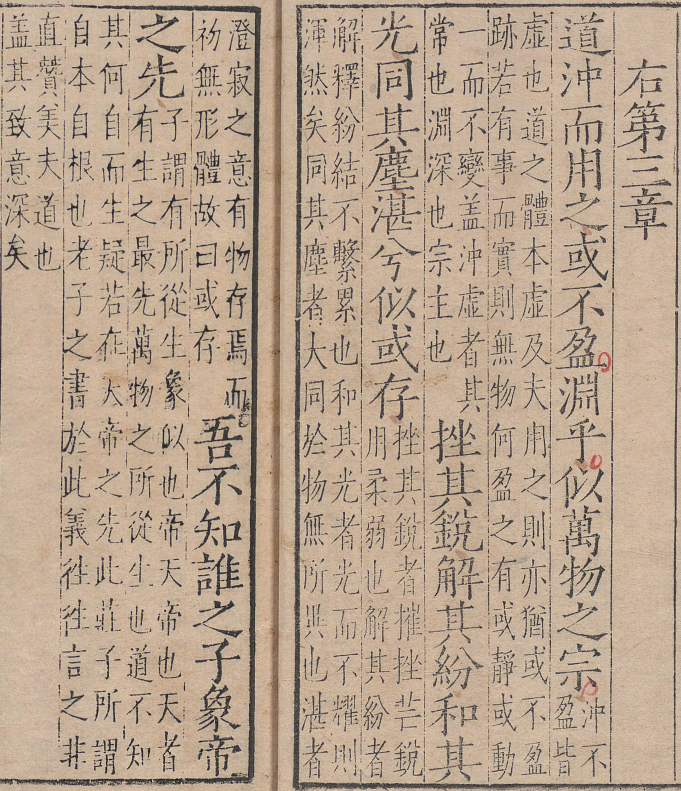 右第三章
道沖而用之或不盈淵乎似萬物之宗
沖不
盈皆
虛也道之體本虛及夫用之則亦猶或不盈
跡若有事而實則無物何盈之有或靜或動
一而不變盖沖虛者其
常也淵深也宗主也
挫其銳解其紛和其
光同其塵湛兮似或存
挫其銳者摧挫芒銳
用柔弱也解其紛者
解釋紛結不繫累也和其光者光而不耀則
渾然矣同其塵者大同於物無所異也湛者
澄寂之意有物存焉而
初無形體故曰或存
吾不知誰之子象帝
之先
子謂有所從生象似也帝天帝也天者
有生之最先萬物之所從生也道不知
其何自而生疑若在天帝之先此莊子所謂
自本自根也老子之書於此義徃徃言之非
直贊美夫道也
盖其致意深矣